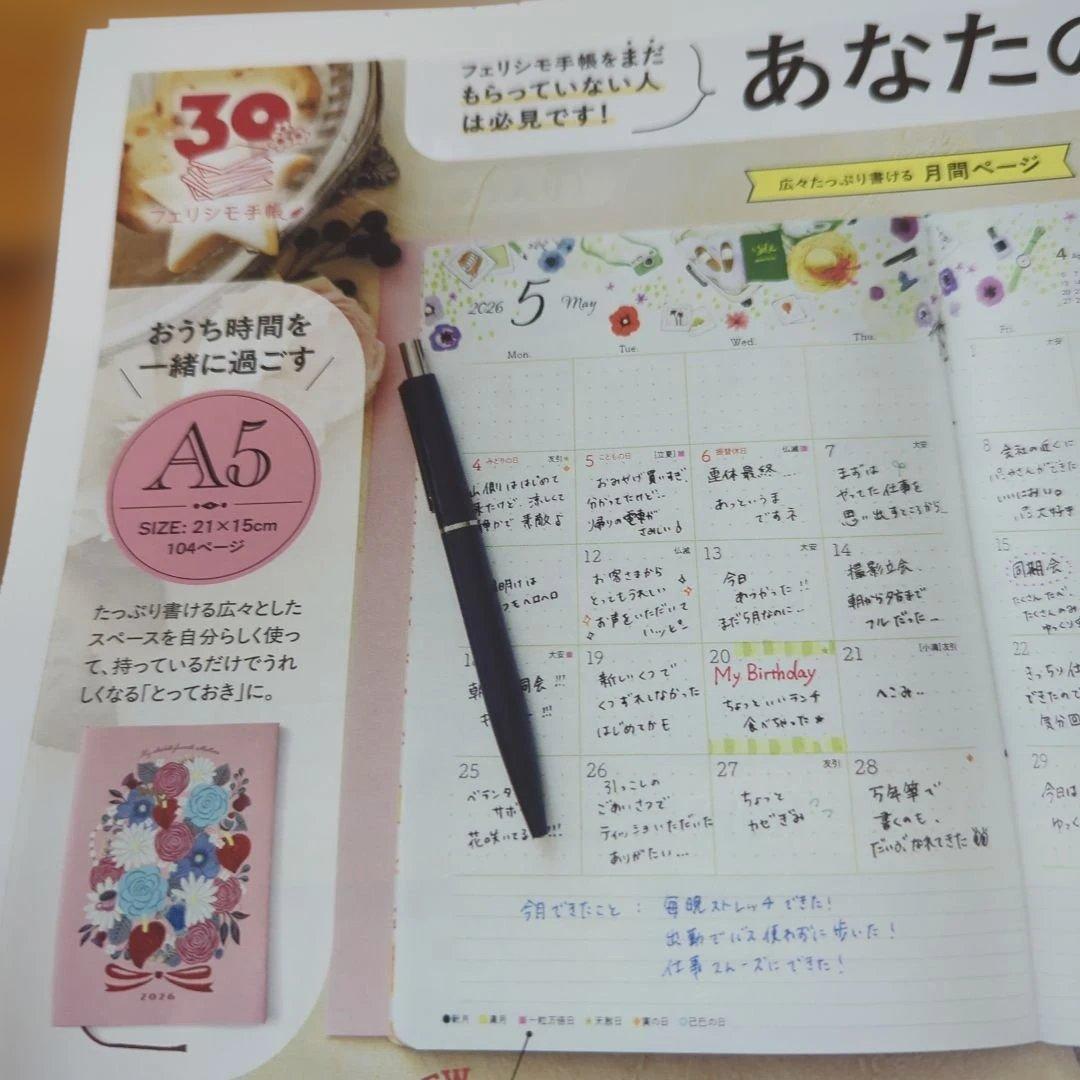 フェリシモ手帳をまだ
もらっていない人
は必見です!
あなたの
30
フェリシモ手帳
広々たっぷり書ける 月間ページ
おうち時間を
一緒に過ごす
A5
SIZE: 21×15cm
104ページ
たっぷり書ける広々とした
スペースを自分らしく使っ
て、持っているだけでうれ
しくなる「とっておき」に。
2026
2026 5 May
Mon. Tue. Wed. Thu. Fri.
1 大安
4 みどりの日 友引
はじめて
涼しくて
素敵♪
5 こどもの日 [立夏]
おみやげ買いすぎ
分かってたけど…
帰りの電車が
さみしい
6 振替休日 仏滅
連休最終…
あっというま
ですネ
7 大安
まずは
やってた仕事を
思い出すところから…
8
会社の近くに
いいにおい。
大好き
明けは
ヘロヘロ
12 仏滅
お客さまから
とってもうれしい
お声をいただいて
13 大安
今日
あつかった!!
まだ5月なのに…
14
撮影立会
朝から夕方まで
フルだった…
15
同期会
大安
朝 同会!!!
19
新しいくつで
くつずれしなかった
はじめてかも
20
My Birthday
ちょっといいランチ
食べちゃった
21 [小満]友引
へこみ..
22
きっちり仕
できたので
気分
25
ベランダ
サボ
花咲いてる!!!
26
引っこしの
ごあいさつで
ティッシュいただいた
ありがたい…
27 友引
ちょっと
カゼぎみ
28
万年筆で
書くのも、
だいぶなれてきた
29
今日は
ゆっく
今月できたこと : 毎晩ストレッチできた!
出勤でバス使わずに歩いた!
仕事スムーズにできた!
●新月 満月 ■一粒万倍日 ★天赦日 ◆寅の日 ○己巳の日